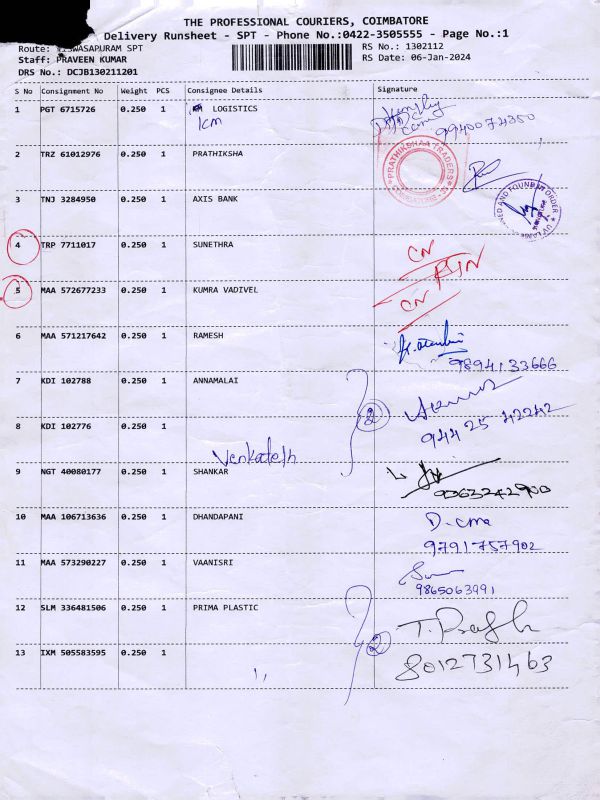 THE PROFESSIONAL COURIERS, COIMBATORE
Delivery Runsheet - SPT - Phone No.:0422-3505555 - Page No.:1
Route: VISWASAPURAM SPT
RS No.: 1302112
Staff: PRAVEEN KUMAR
RS Date: 06-Jan-2024
DRS No.: DCJB130211201
S No Consignment No Weight PCS Consignee Details Signature
1 PGT 6715726 0.250 1 LOGISTICS
KM 9940074350
2 TRZ 61012976 0.250 1 PRATHIKSHA
PRATHIKSHAA TRADERS
3 TNJ 3284950 0.250 1 AXIS BANK
4 TRP 7711017 0.250 1 SUNETHRA CN
RTN
5 MAA 572677233 0.250 1 KUMRA VADIVEL CN
6 MAA 571217642 0.250 1 RAMESH
9894133666
7 KDI 102788 0.250 1 ANNAMALAI
2
8 KDI 102776 0.250 1 94425 42242
Venkatesh
9 NGT 40080177 0.250 1 SHANKAR
9063242900
10 MAA 106713636 0.250 1 DHANDAPANI D.cma
9791757902
11 MAA 573290227 0.250 1 VAANISRI
9865063991
12 SLM 336481506 0.250 1 PRIMA PLASTIC
2
13 IXM 505583595 0.250 1 8012731463